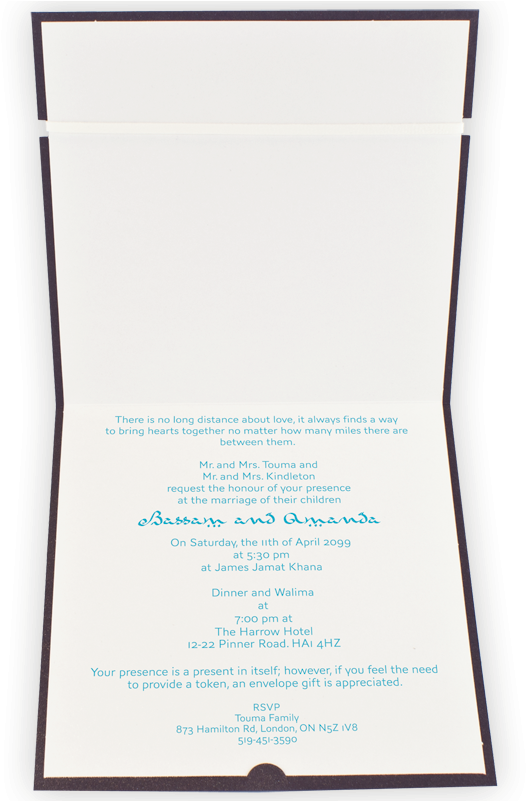 There is no long distance about love, it always finds a way
to bring hearts together no matter how many miles there are
between them.
Mr. and Mrs. Touma and
Mr. and Mrs. Kindleton
request the honour of your presence
at the marriage of their children
Bassam and Amanda
On Saturday, the 11th of April 2099
at 5:30 pm
at James Jamat Khana
Dinner and Walima
at
7:00 pm at
The Harrow Hotel
12-22 Pinner Road. HA1 4HZ
Your presence is a present in itself; however, if you feel the need
to provide a token, an envelope gift is appreciated.
RSVP
Touma Family
873 Hamilton Rd, London, ON N5Z 1V8
519-451-3590